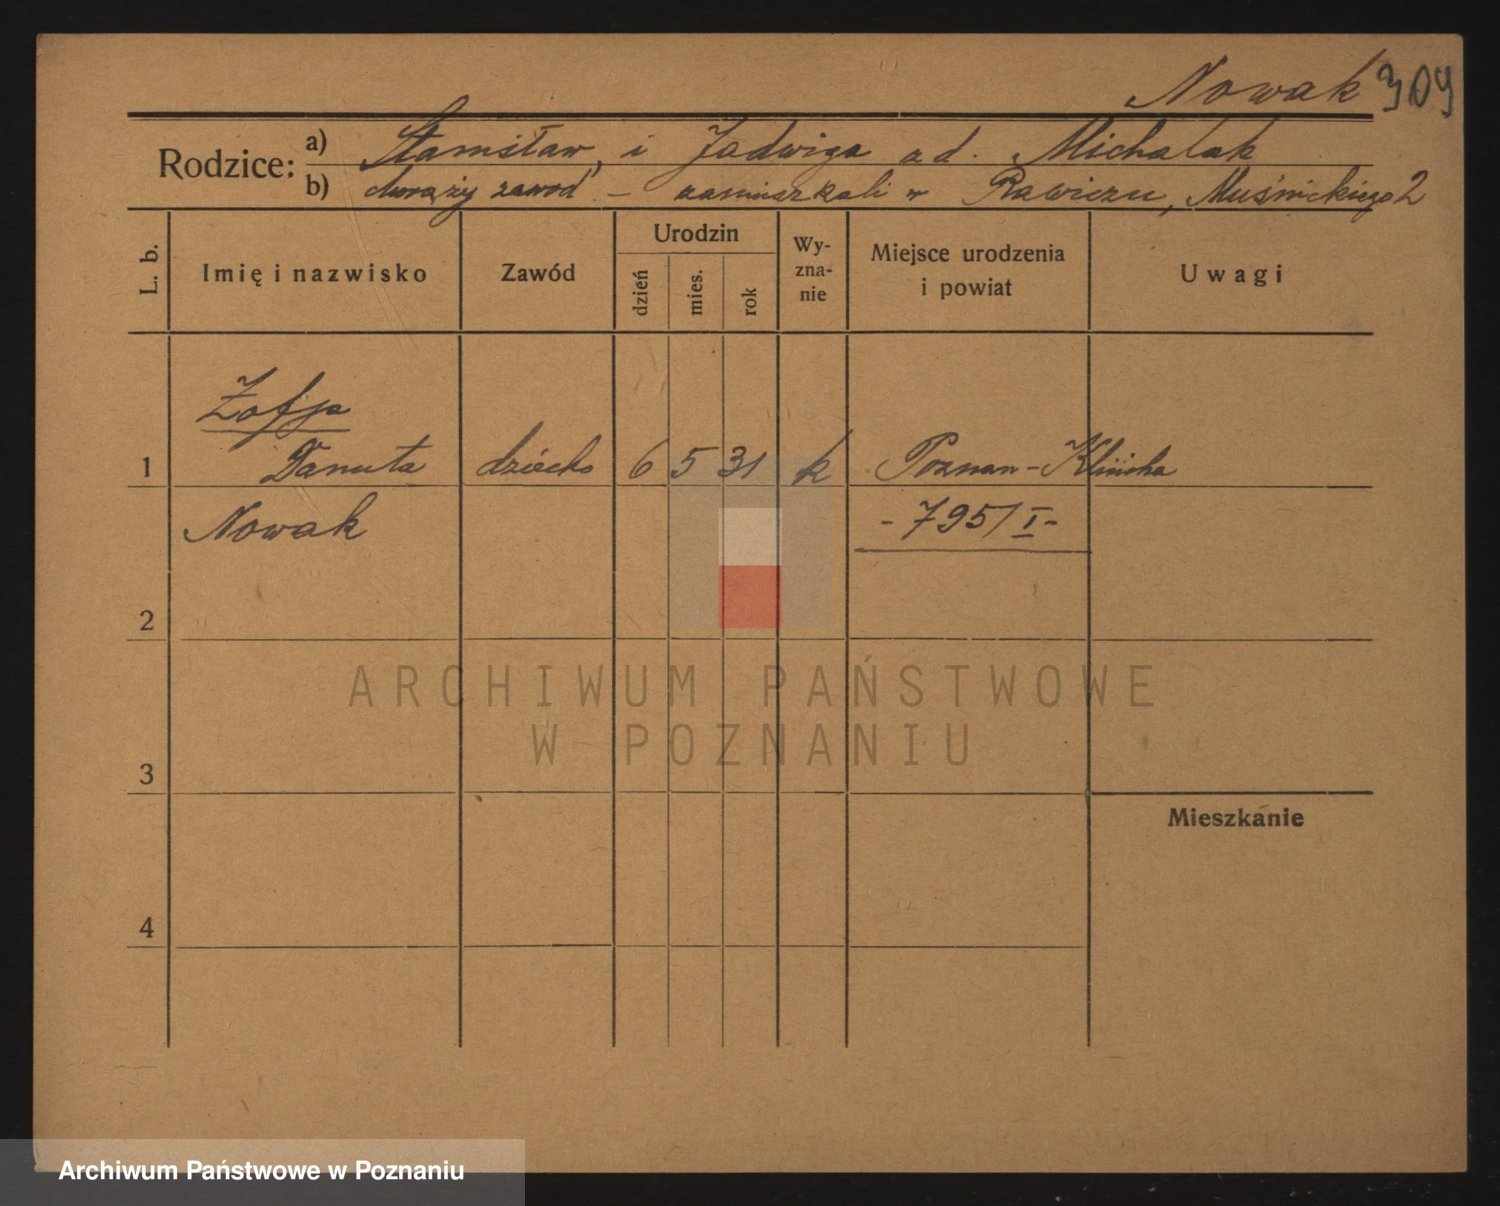 Nowak 309
Rodzice: a) Stanisław, i Jadwiga a d. Michalak
b) chorąży zawod – zamieszkali w Rawiczu, Muśnickiego 2
L. b.
Imię i nazwisko
Zawód
Urodzin
dzień
mies.
rok
Wy-
zna-
nie
Miejsce urodzenia
i powiat
Uwagi
Zofja
1 Danuta dziecko 6 5 31 k Poznan - Klinika
Nowak - 795/I -
2
ARCHIWUM PAŃSTWOWE
W POZNANIU
3
Mieszkanie
4
Archiwum Państwowe w Poznaniu